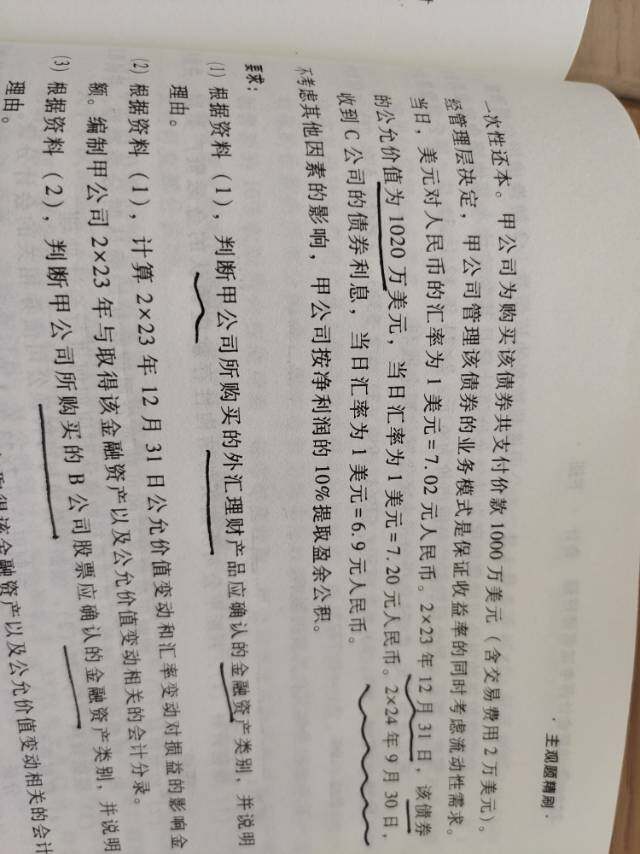 ·主观题精刷·
一次性还本。甲公司为购买该债券共支付价款1000万美元（含交易费用2万美元）。
经管理层决定，甲公司管理该债券的业务模式是保证收益率的同时考虑流动性需求。
当日，美元对人民币的汇率为1美元=7.02元人民币。2×23年12月31日，该债券
的公允价值为1020万美元，当日汇率为1美元=7.20元人民币。2×24年9月30日，
收到C公司的债券利息，当日汇率为1美元=6.9元人民币。
不考虑其他因素的影响，甲公司按净利润的10%提取盈余公积。
要求：
（1）根据资料（1），判断甲公司所购买的外汇理财产品应确认的金融资产类别，并说明
理由。
（2）根据资料（1），计算2×23年12月31日公允价值变动和汇率变动对损益的影响金
额。编制甲公司2×23年与取得该金融资产以及公允价值变动相关的会计分录。
（3）根据资料（2），判断甲公司所购买的B公司股票应确认的金融资产类别，并说明
理由。
取得该金融资产以及公允价值变动相关的会计